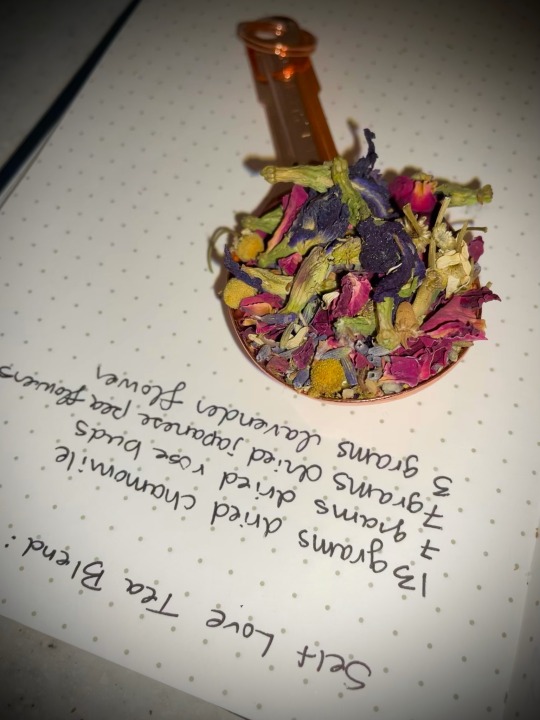 Self Love Tea Blend:
13 grams dried chamomile
7 grams dried rose buds
7 grams dried japanese pea flowers
3 grams lavender flower